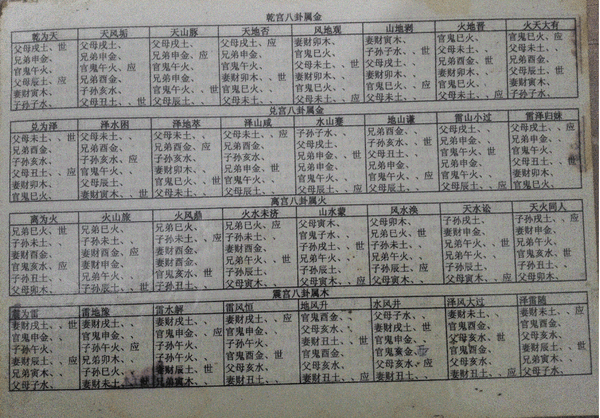 乾宫八卦属金
乾为天 天风垢 天山豚 天地否 风地观 山地剥 火地晋 火天大有
父母戌土、世 父母戌土、 父母戌土、 父母戌土、应 妻财卯木、 妻财寅木、 官鬼巳火、 官鬼巳火、应
兄弟申金、 兄弟申金、 兄弟申金、应 兄弟申金、 官鬼巳火、 子孙子水、、世 父母未土、、 父母未土、、
官鬼午火、 官鬼午火、应 官鬼午火、 官鬼午火、 父母未土、、世 父母戌土、、 兄弟酉金、世 兄弟酉金、
父母辰土、应 兄弟酉金、 兄弟申金、 妻财卯木、、世 妻财卯木、、 妻财卯木、、 妻财卯木、、 父母辰土、世
妻财寅木、 子孙亥水、 官鬼午火、、世 官鬼巳火、、 官鬼巳火、、 官鬼巳火、、应 官鬼巳火、、 妻财寅木、
子孙子水、 父母丑土、、世 父母辰土、、 父母未土、、 父母未土、、应 父母未土、、 父母未土、、应 子孙子水、
兑宫八卦属金
兑为泽 泽水困 泽地萃 泽山咸 水山蹇 地山谦 雷山小过 雷泽归妹
父母未土、、世 父母未土、、 父母未土、、 父母未土、、应 子孙子水、、 兄弟酉金、、 父母戌土、、 父母戌土、、应
兄弟酉金、 兄弟酉金、 兄弟酉金、应 兄弟酉金、 父母戌土、 子孙亥水、、世 兄弟申金、、 兄弟申金、、
子孙亥水、 子孙亥水、应 子孙亥水、 子孙亥水、 兄弟申金、、世 父母丑土、、 官鬼午火、世 官鬼午火、
父母丑土、、应 官鬼午火、、 妻财卯木、、 兄弟申金、世 兄弟申金、 兄弟申金、 兄弟申金、 父母丑土、、世
妻财卯木、 父母辰土、 官鬼巳火、、世 官鬼午火、、 官鬼午火、、 官鬼午火、、应 官鬼午火、、 妻财卯木、
官鬼巳火、 妻财寅木、、世 父母未土、、 父母辰土、、 父母辰土、、应 父母辰土、、 父母辰土、、应 官鬼巳火、
离宫八卦属火
离为火 火山旅 火风鼎 火水未济 山水蒙 风水涣 天水讼 天火同人
兄弟巳火、世 兄弟巳火、 兄弟巳火、 兄弟巳火、应 父母寅木、 父母卯木、 子孙戌土、 子孙戌土、应
子孙未土、、 子孙未土、、 子孙未土、、应 子孙未土、、 官鬼子水、、 兄弟巳火、世 妻财申金、 妻财申金、
妻财酉金、 妻财酉金、应 妻财酉金、 妻财酉金、 子孙戌土、、世 子孙未土、、 兄弟午火、世 兄弟午火、
官鬼亥水、应 妻财申金、 妻财酉金、 兄弟午火、、世 兄弟午火、、 兄弟午火、、 兄弟午火、、 官鬼亥水、世
子孙丑土、、 兄弟午火、、 官鬼亥水、世 子孙辰土、 子孙辰土、 子孙辰土、应 子孙辰土、 子孙丑土、、
父母卯木、 子孙辰土、、世 子孙丑土、、 父母寅木、、 父母寅木、、应 父母寅木、、 父母寅木、、应 父母卯木、
震宫八卦属木
震为雷 雷地豫 雷水解 雷风恒 地风升 水风井 泽风大过 泽雷随
妻财戌土、、世 妻财戌土、、 妻财戌土、、 妻财戌土、、应 官鬼酉金、、 父母子水、、 妻财未土、、 妻财未土、、应
官鬼申金、、 官鬼申金、、 官鬼申金、、应 官鬼申金、、 父母亥水、、 妻财戌土、世 官鬼酉金、 官鬼酉金、
子孙午火、 子孙午火、应 子孙午火、 子孙午火、 妻财丑土、、世 官鬼申金、、 父母亥水、世 父母亥水、
妻财辰土、、应 兄弟卯木、、 子孙午火、、 官鬼酉金、世 官鬼酉金、 官鬼酉金、 官鬼酉金、 妻财辰土、、世
兄弟寅木、、 子孙巳火、、 妻财辰土、世 父母亥水、 父母亥水、 父母亥水、应 父母亥水、 兄弟寅木、、
父母子水、 妻财未土、、世 兄弟寅木、、 妻财丑土、、 妻财丑土、、应 妻财丑土、、 妻财丑土、、应 父母子水、